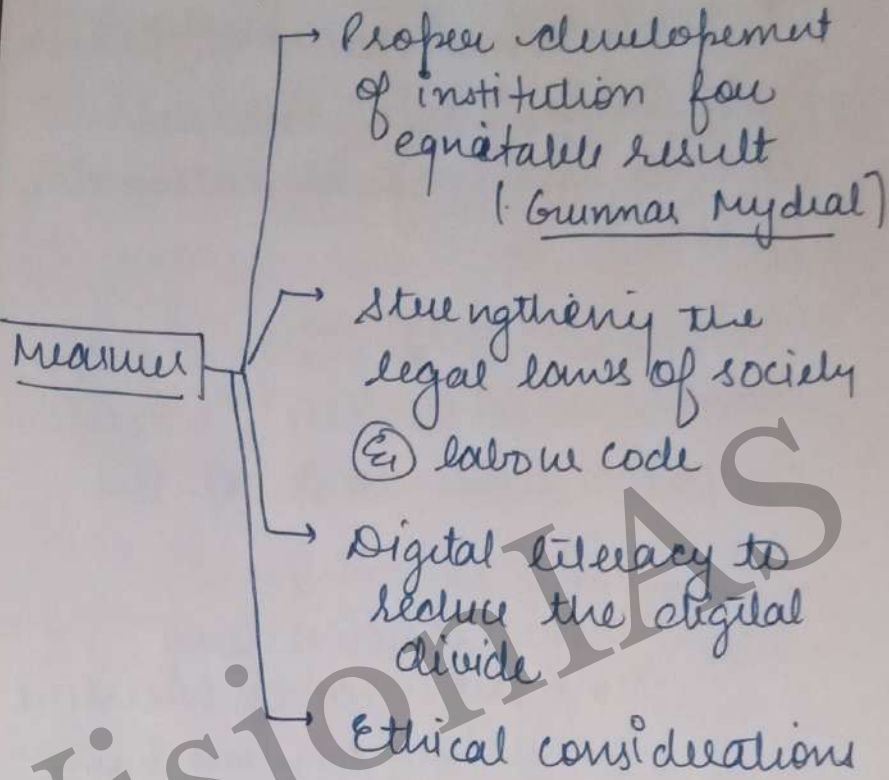 Proper developement
of institution for
equitable result
(Gunnar Mydral)
Strengthening the
legal laws of society
Eg labour code
Measures
Digital literacy to
reduce the digital
divide
Ethical considerations
VisionIAS